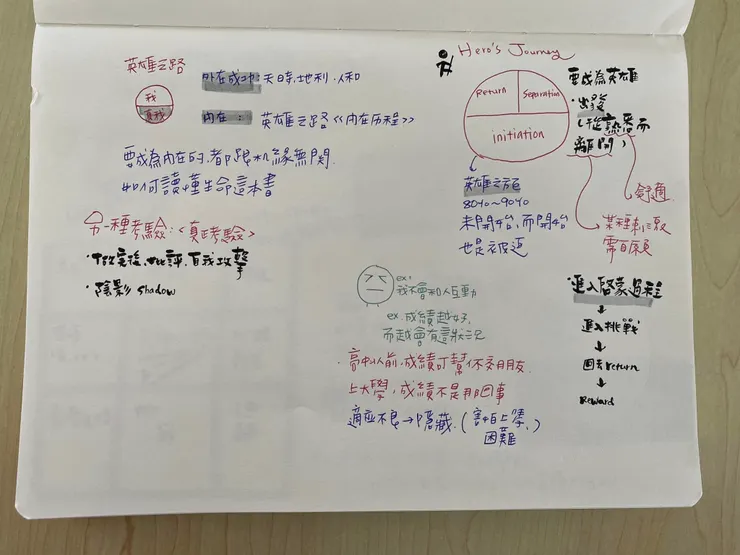 英雄之路
我
真我
外在成功:天時、地利、人和
內在:英雄之路《內在历程》
要成為內在的,都跟机緣無関.
如何讀懂生命這本書
另一種考驗:〈真正考驗〉
批評、自我攻擊
・陰影 shadow
Hero's Journey
Return
Separation
initiation
英雄之旅
80%~90%
未開始,而開始
也是被迫
要成為英雄
・出發
(從熟悉而
離開)
舒適
某種刺激
需自願
・進入啓蒙過程
↓
進入挑戰
↓
回去return
↓
Reward
ex:
我不會和人互動
ex.成績越好,
而越會有這狀況
・高中以前,成績可幫你交朋友.
上大學,成績不是那回事
適應不良→隱藏.(害怕上學,
困難.)